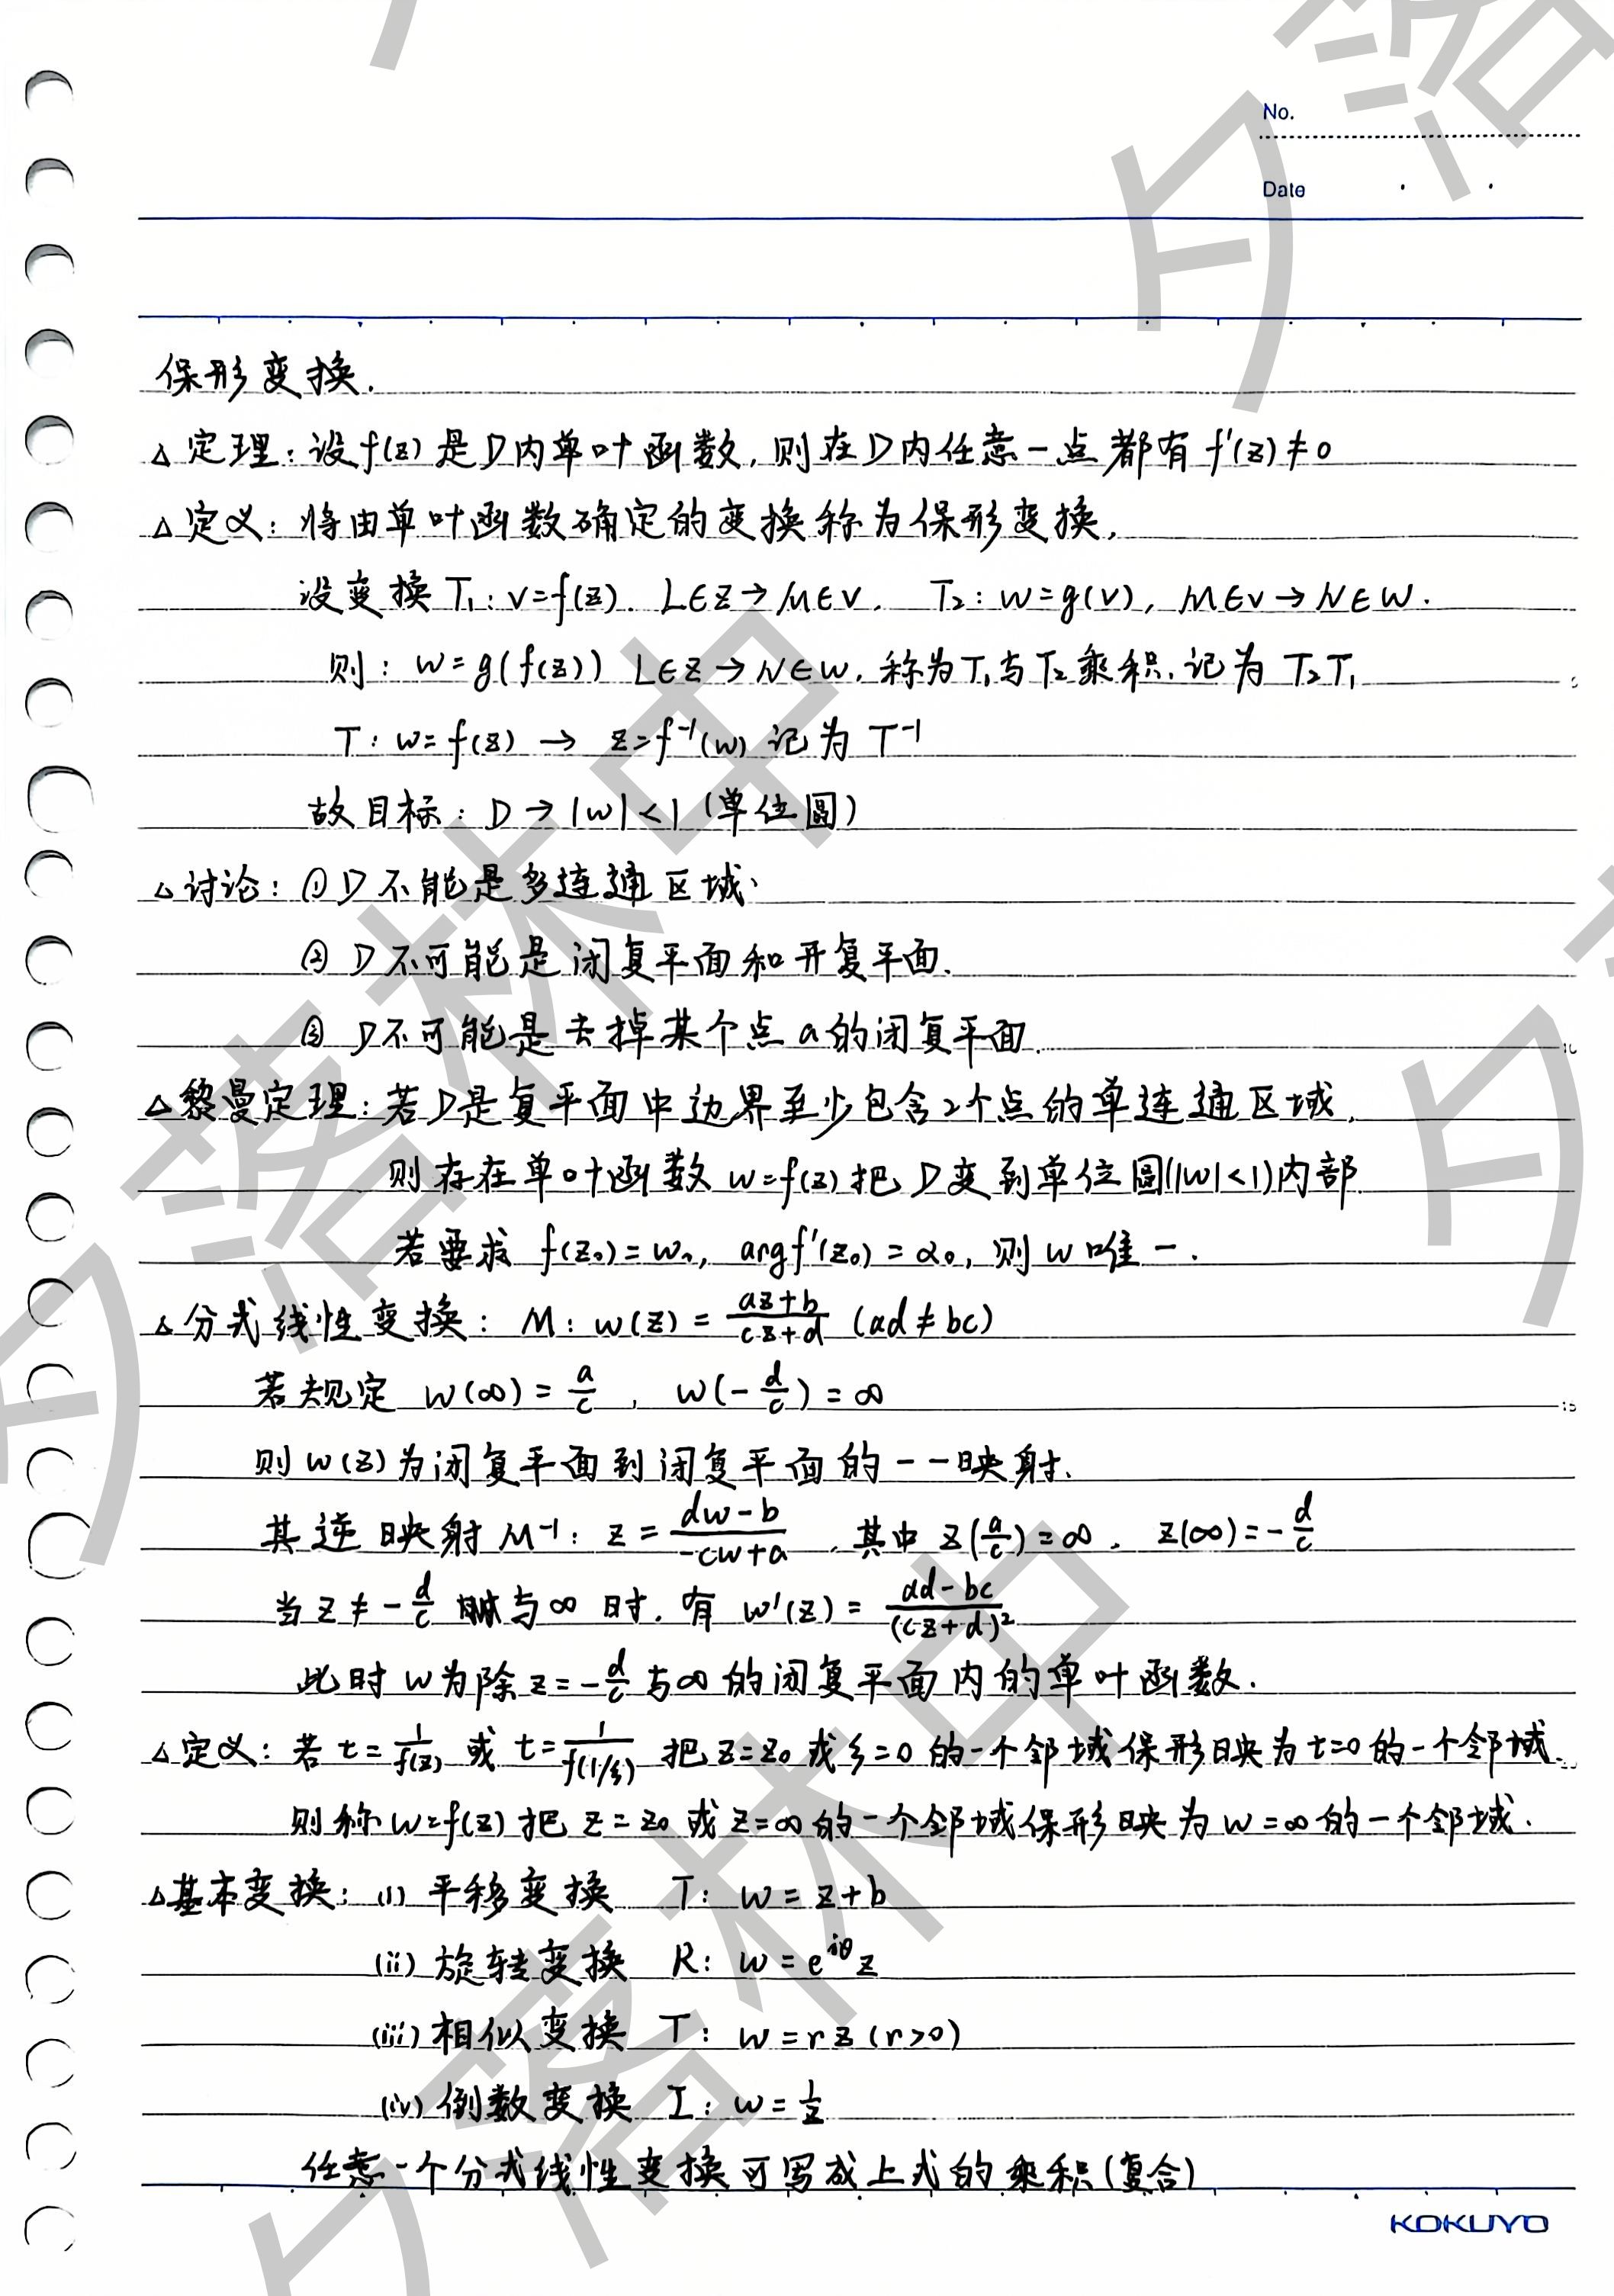 No.
Date
保形变换.
△定理：设f(z)是D内单叶函数,则在D内任意一点都有f'(z)≠0
△定义：将由单叶函数确定的变换称为保形变换,
设变换T₁：v=f(z). L∈z→M∈v. T₂：w=g(v), M∈v→N∈w.
则：w=g(f(z)) L∈z→N∈w,称为T₁与T₂乘积,记为T₂T₁
T：w=f(z) → z=f⁻¹(w) 记为 T⁻¹
故目标：D→|w|<1 (单位圆)
△讨论：①D不能是多连通区域.
② D不可能是闭复平面和开复平面.
③ D不可能是去掉某个点a的闭复平面.
△黎曼定理：若D是复平面中边界至少包含2个点的单连通区域,
则存在单叶函数w=f(z)把D变到单位圆(|w|<1)内部.
若要求 f(z₀)=w₀, argf'(z₀)=α₀,则w唯一.
△分式线性变换：M：w(z)=\frac{az+b}{cz+d} (ad≠bc)
若规定 w(∞)=\frac{a}{c}, w(-\frac{d}{c})=∞
则w(z)为闭复平面到闭复平面的一一映射.
其逆映射M⁻¹：z=\frac{dw-b}{-cw+a},其中z(\frac{a}{c})=∞. z(∞)=-\frac{d}{c}
当z≠-\frac{d}{c} 与∞时.有 w'(z)=\frac{ad-bc}{(cz+d)²}
此时w为除z=-\frac{d}{c}与∞的闭复平面内的单叶函数.
△定义：若t=\frac{1}{f(z)}或t=\frac{1}{f(1/ξ)}把z=z₀或ξ=0的一个邻域保形映为t=0的一个邻域.
则称w=f(z)把z=z₀或z=∞的一个邻域保形映为w=∞的一个邻域.
△基本变换：(i) 平移变换 T：w=z+b
(ii) 旋转变换 R：w=e^{iθ}z
(iii) 相似变换 T：w=rz(r>0)
(iv) 倒数变换 I：w=\frac{1}{z}
任意一个分式线性变换可写成上式的乘积(复合)
KOKUYO
夕落林中
夕落林中
夕落
夕